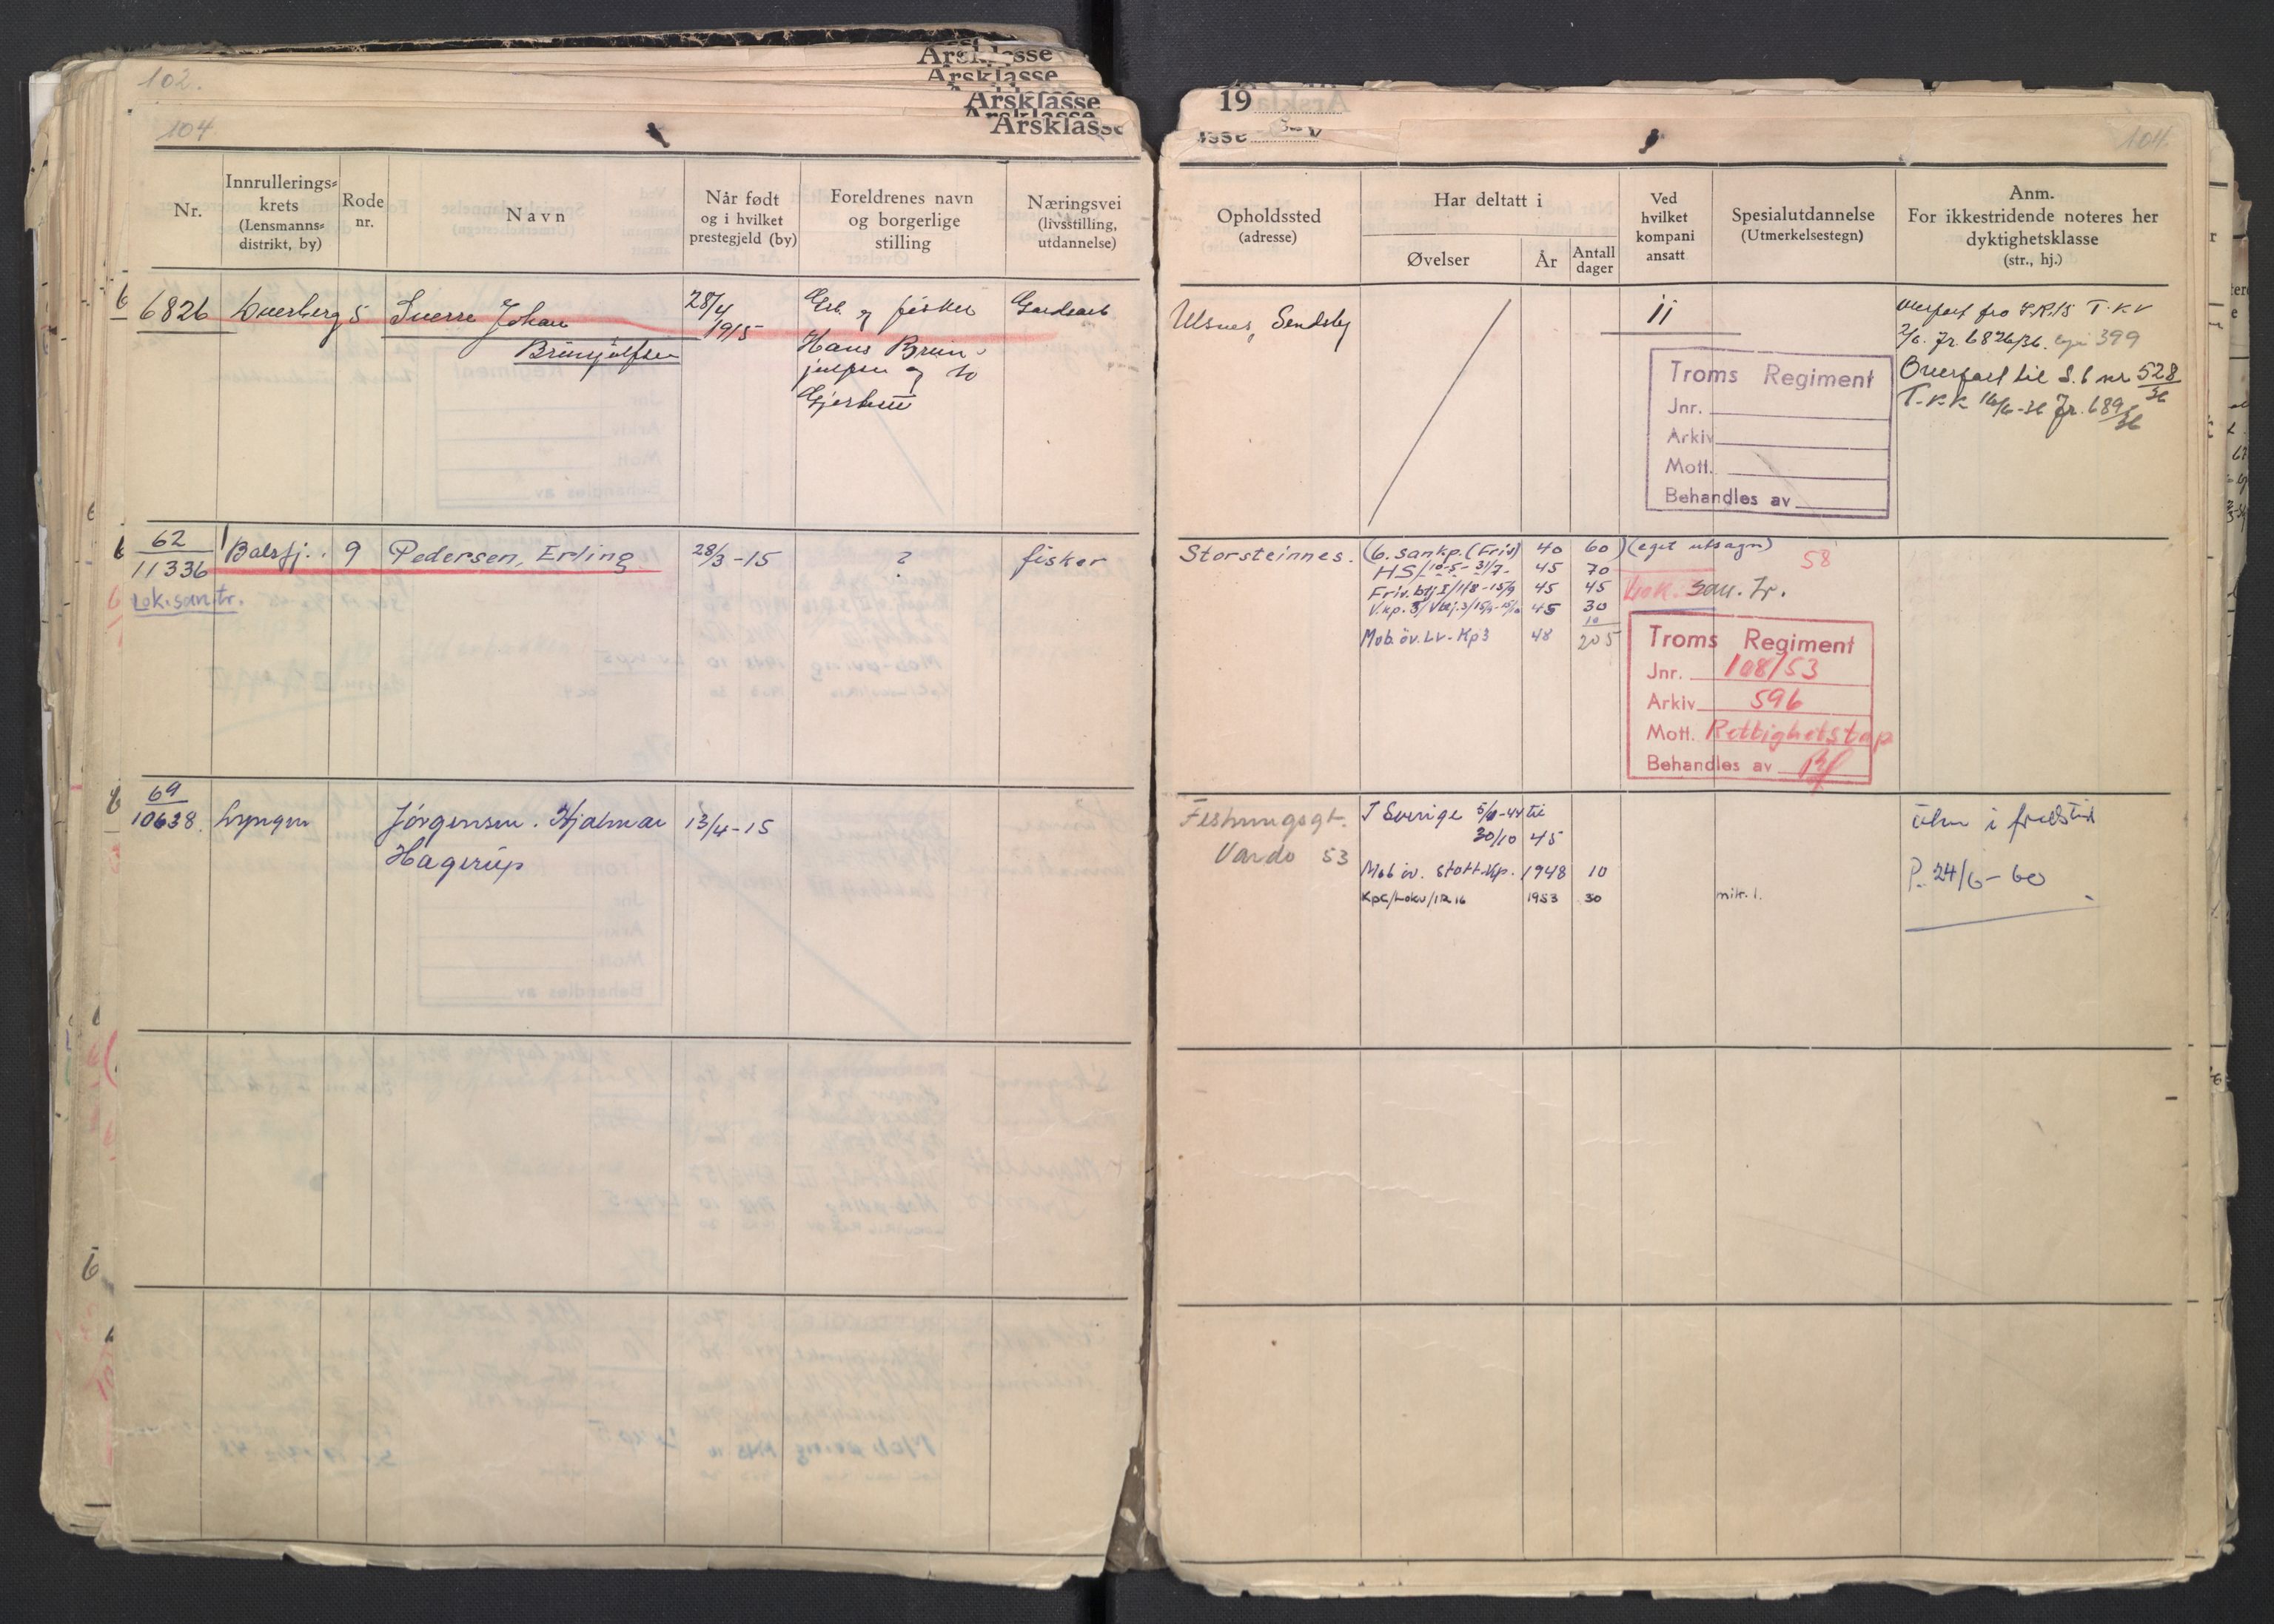 102.
Årsklasse
Årsklasse
Årsklasse
Årsklasse
104
Nr.
Innrullerings-
krets
(Lensmanns-
distrikt, by)
Rode
nr.
Navn
Når født
og i hvilket
prestegjeld (by)
Foreldrenes navn
og borgerlige
stilling
Næringsvei
(livsstilling,
utdannelse)
6
6826
5
Sverre Johan
Brünjulfsen
28/4
1915
og fisker
Hans Brün-
julfsen og
Gårdsarb
6
62
11336
Balsfj.
9
Pedersen, Erling
28/3-15
?
fisker
Lok.san.tr.
6
69
10638.
Lyngen
Jörgensen. Hjalmar
Hagerüp
13/4-15
6
19
104
Opholdssted
(adresse)
Har deltatt i
Øvelser
År
Antall
dager
Ved
hvilket
kompani
ansatt
Spesialutdannelse
(Utmerkelsestegn)
Anm.
For ikkestridende noteres her
dyktighetsklasse
(str., hj.)
Ulsnes, Sendsby
11
Overført fra I.R.15 T.K.V
2/6. Jr. 6826/36. 399
Overført til S.6 nr 528/36
T.K.K 16/6-36 Jr. 689/36
Troms Regiment
Jnr.
Arkiv
Mott.
Behandles av
Storsteinnes.
(6. sankp. (Fris) 40 60) (eget utsagn)
58
HS/10-5-31/7- 45 70
Friv. btj I/1/8-15/9 45 45
san. Tr.
45 30
10
Mob. öv. Lv-Kp3 48 205
Troms Regiment
Jnr. 108/53
Arkiv 596
Mott. Rettighetstap
Behandles av
Festningsgt.
Vardö 53
I Sverige 5/1-44 til
30/10 45
Mob öv. Støtt.kp. 1948 10
KpC/Lokv/IR16 1953 30
mitr. l.
i fredstid
P. 24/6-60